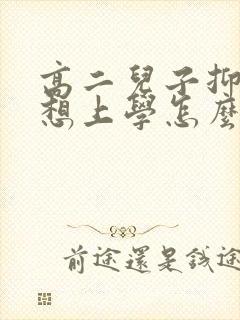 高二兒子抑
想上學怎麼
前途還是錢途